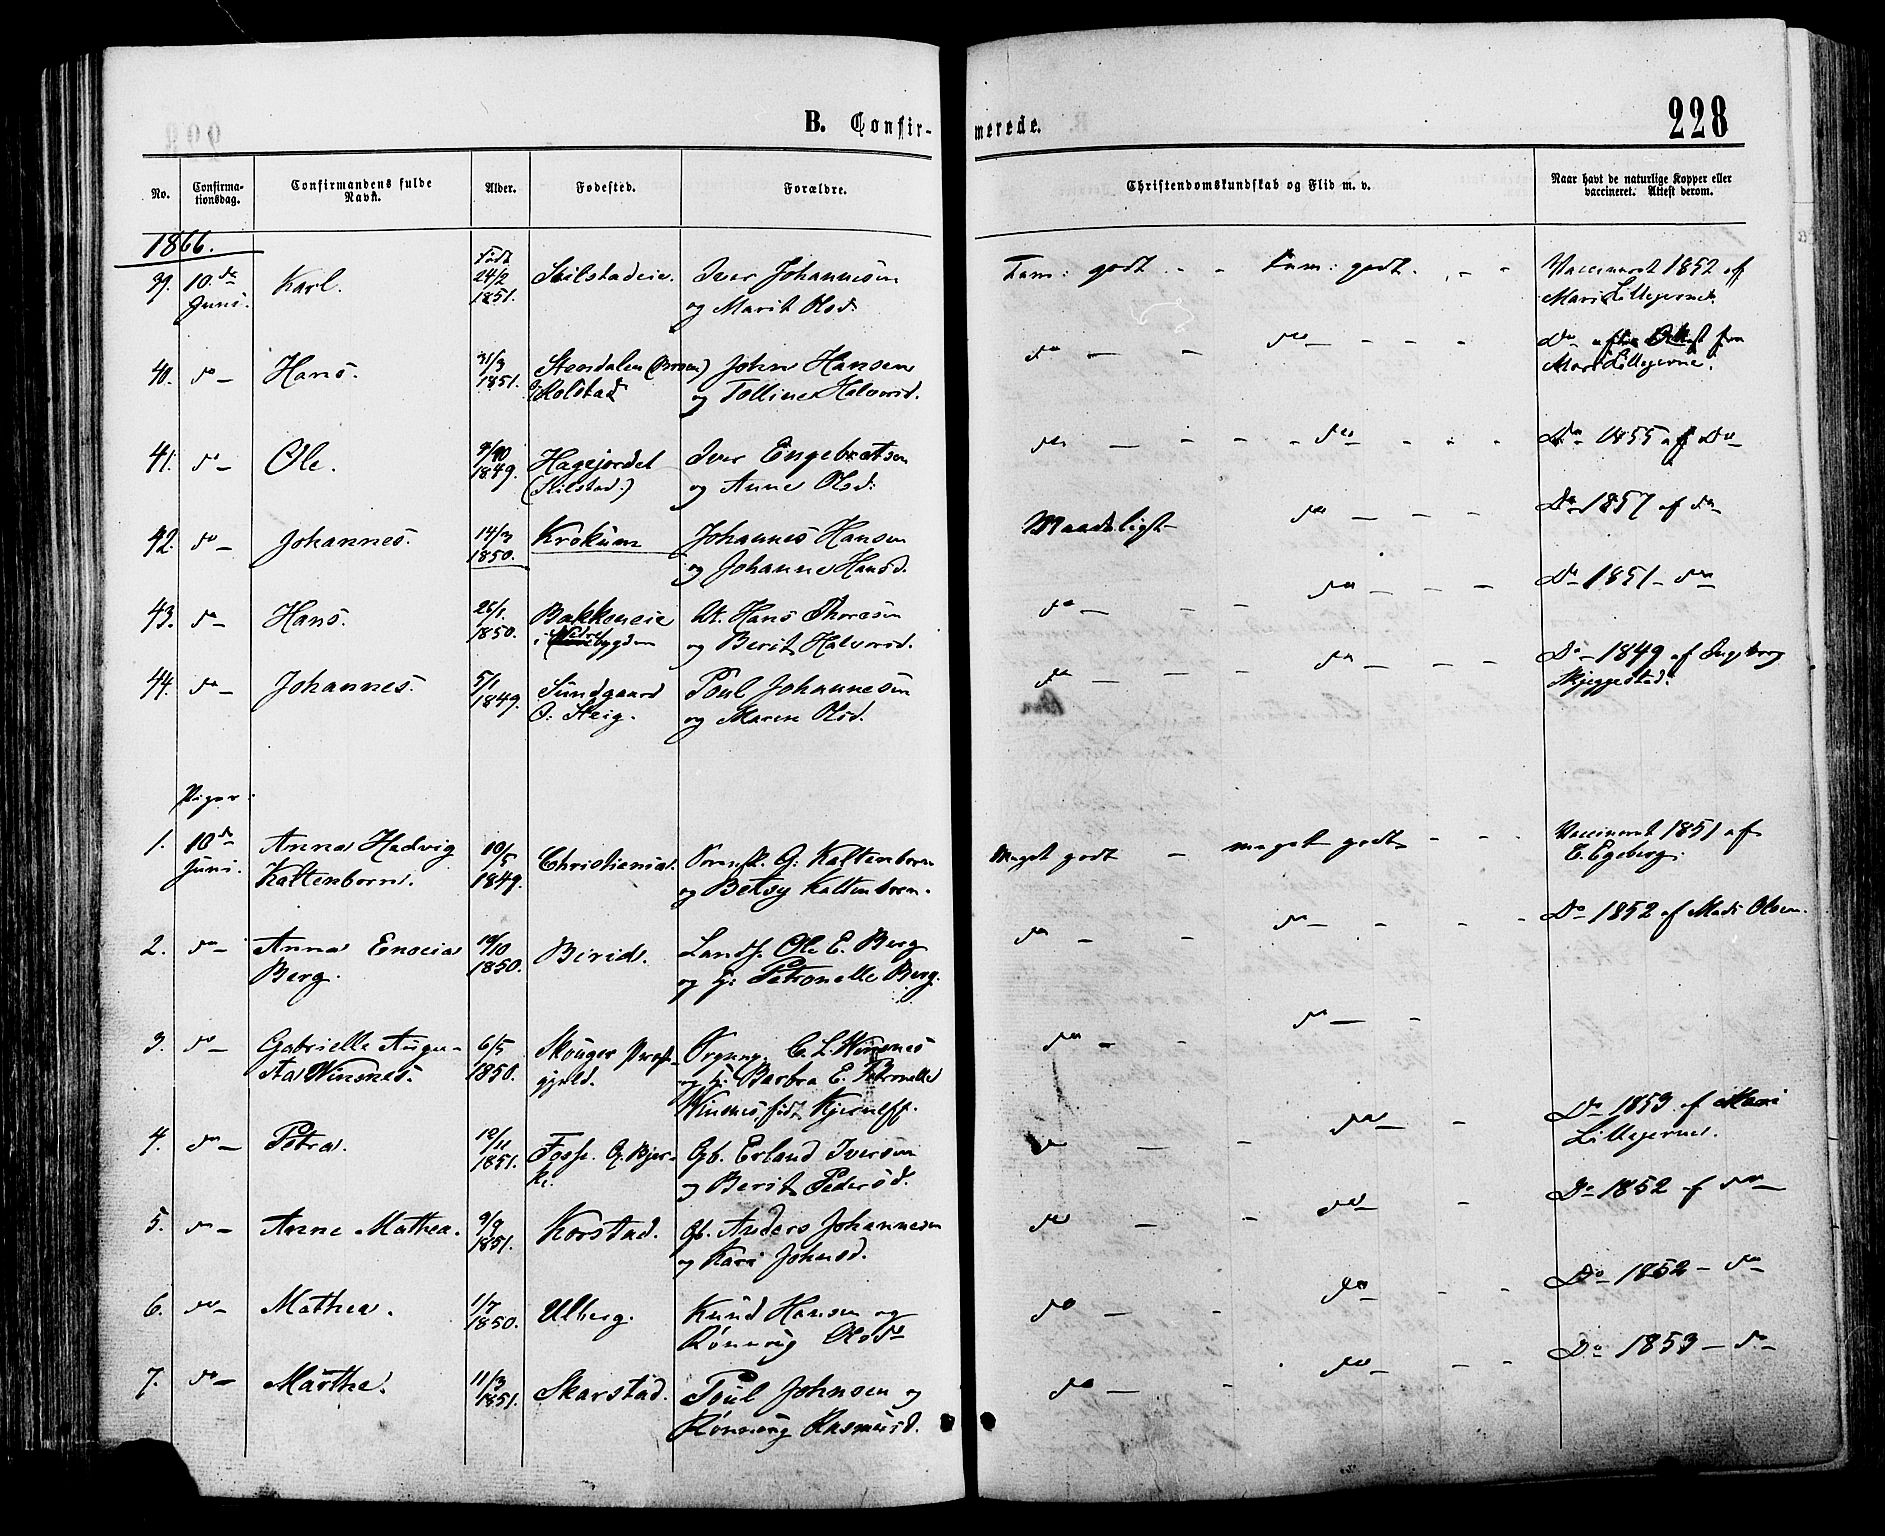 B. Confir-merede.
228
No.
Confirma-tionsdag.
Confirmandens fulde Navn.
Alder.
Fødested.
Forældre.
Christendomskundskab og Flid m. v.
Naar havt de naturlige Kopper eller vaccineret. Attest derom.
1866.
39. 10de Juni. Karl. Født 24/2 1851. Kilstadeie. Iver Johannesen
og Marit Olsd. Tem: godt - - Tem: godt - - Vaccineret 1852 af
Mari Lillegerne.
40. do Hans. 31/3 1851. Stendalen
Kolstad John Hansen
og Tolline Halvorsd. do - - do - - - Do
Mari Lillegerne.
41. do Ole. 9/10 1849. Hagejordet
(Kilstad.) Iver Engebretsen
og Anne Olsd: do - - - - do - - - Do 1855 af Do
42. do Johannes. 14/3 1850. Krokum Johannes Hansen
og Johanne Hansd. Maadeligt do - - - Do 1857 af do
43. do Hans. 26/1 1850. Bakkeneie
i Nedrebygden Ut. Hans Thoresen
og Berit Halvorsd. do - - - do - - - Do 1851 - do
44. do Johannes. 5/1 1849. Sundgaard
O: Steig. Poul Johannesen
og Maren Olsd. do - - - do - - - Do 1849 af Ingeborg
Skjeggestad.
Piger:
1. 10de Juni. Anna Hedvig
Kaltenborn. 10/5 1849. Christiania. G. Kaltenborn
og Betsy Kaltenborn. Meget godt - meget godt - - - Vaccineret 1851 af
C. Egeberg.
2. do Anna Enocia
Berg. 19/10 1850. Birid. Landh. Ole E. Berg
og H: Petronelle Berg. do - - do - - - Do 1852 af Mads Olsen.
3. do Gabrielle Augu-
sta Winsnes. 6/5 1850. Skouger Præste-
gjeld. C. L. Winsnes
og H: Barbra E. Petronelle
Winsnes, født Kjerulff. do - - do - -
4. do Petra. 10/11 1851. Fosse. Ø. Bjer-
ke. Gb. Erland Iversen
og Berit Pedersd. do - - do - - Do 1853 af Mari
Lillegerne.
5. do Anne Mathea. 9/9 1851. Korstad. Gb. Anders Johannesen
og Kari Johnsd. do - - do - Do 1852 af do
6. do Mathea. 1/7 1850. Ulberg. Knud Hansen og
Rønnug Olsd do - - do - - - Do 1852 - do
7. do Marthe. 11/3 1851. Skarstad. Poul Johnsen og
Rønnoug Rasmusd. do - - do - - - Do 1853 - do